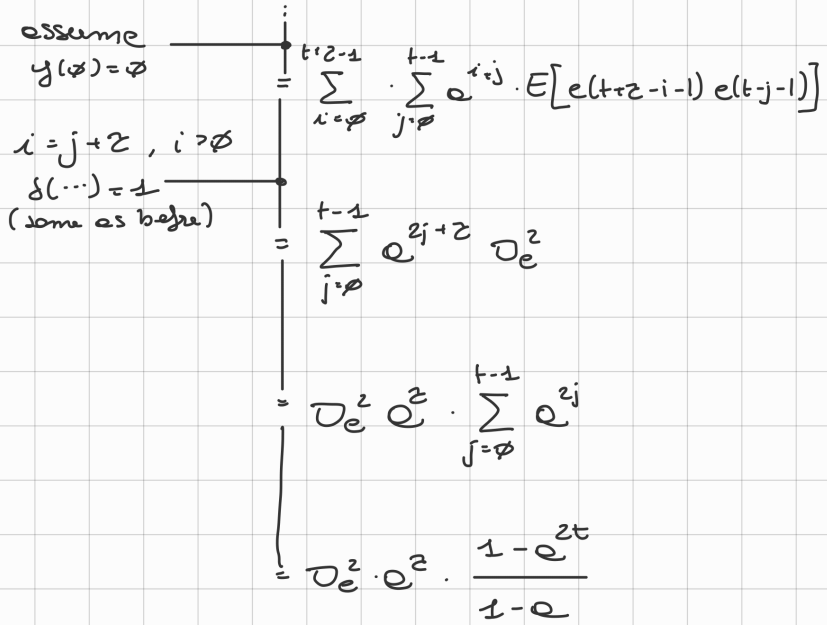 assume
y(∅) = ∅
= \sum_{i=∅}^{t+τ-1} · \sum_{j=∅}^{t-1} a^{i+j} · E[e(t+τ-i-1) e(t-j-1)]
i = j + τ , i > ∅
δ(···) = 1
(same as befre)
= \sum_{j=∅}^{t-1} a^{2j+τ} σ_e^2
= σ_e^2 a^τ · \sum_{j=∅}^{t-1} a^{2j}
= σ_e^2 · a^τ · \frac{1 - a^{2t}}{1 - a}